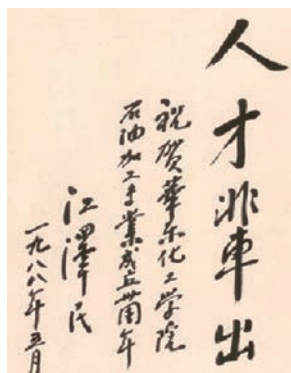 人才輩出
祝贺華东化工学院
石油加工专業成立卅周年
江澤民
一九八八年五月